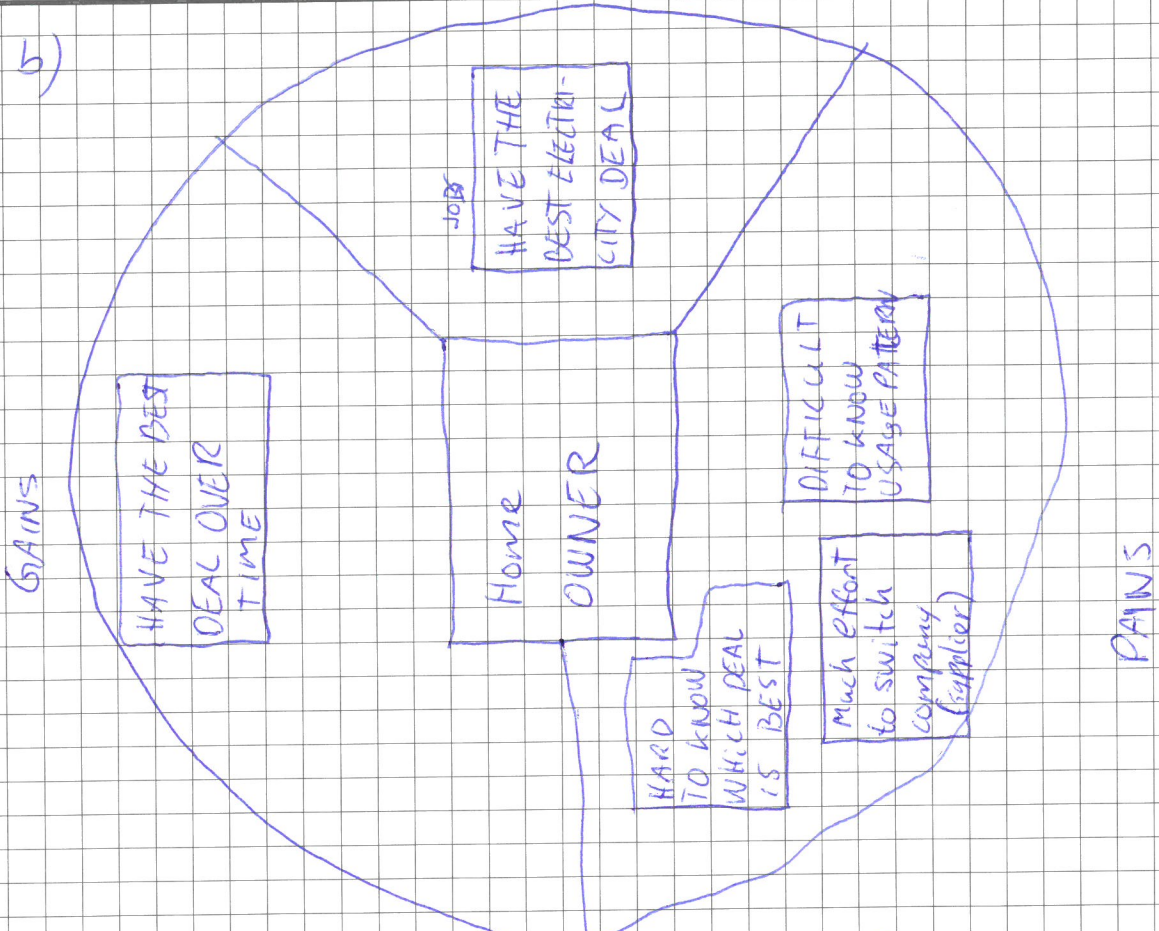 b)
GAINS
HAVE THE BEST
DEAL OVER
TIME
JOBS
HAVE THE
BEST ELECTRI-
CITY DEAL
Home
OWNER
DIFFICULT
TO KNOW
USAGE PATTERN
HARD
TO KNOW
WHICH DEAL
IS BEST
Much effort
to switch
company
(supplier)
PAINS